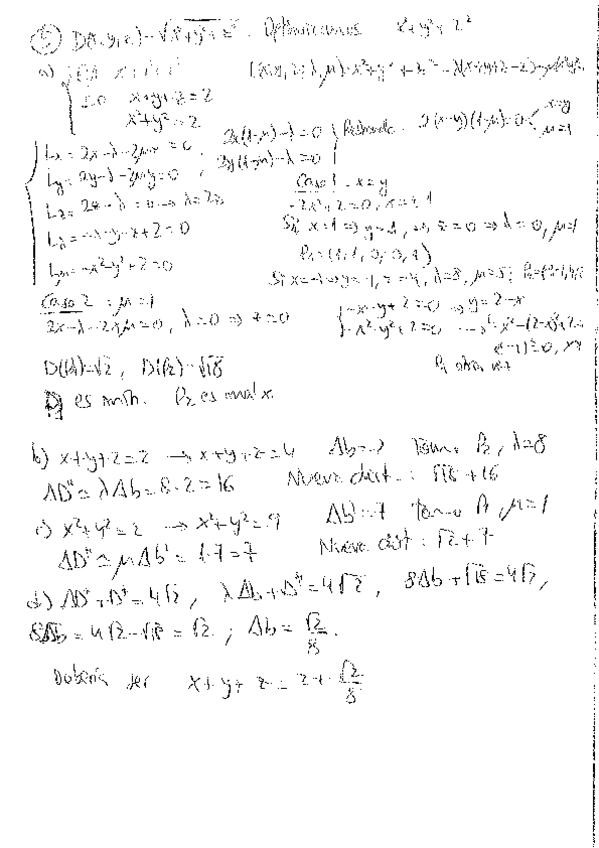 ⑤ D(x,y,z)=√x²+y²+z². Optimizamos x²+y²+z²
a)
s.a. x+y+z=2
x²+y²=2
L(x,y,z,λ,μ)=x²+y²+z²-λ(x+y+z-2)-
Lx=2x-λ-2μx=0
Ly=2y-λ-2μy=0
Lz=2z-λ=0→λ=2z
Lλ=-x-y-z+2=0
Lμ=-x²-y²+2=0
2x(1-μ)-λ=0
2y(1-μ)-λ=0
Restando: 2(x-y)(1-μ)=0 x=y
μ=1
Caso 1: x=y
-2x²+2=0, x=±1
Si x=1⇒y=1, z=0⇒λ=0, μ=1
P₁=(1,1,0,0,1)
Si x=-1⇒y=-1, z=4, λ=8, μ=5;
Caso 2: μ=1
2x-λ-2xμ=0, λ=0⇒z=0
-x-y+2=0⇒y=2-x
-x²-y²+2=0
P₁ otra vez
D(P₁)=√2, D(P₂)=√18
P₁ es mín. P₂ es máx.
b) x+y+z=2→x+y+z=4 Δb=2 Tomo P₂, λ=8
ΔD*≃λΔb=8·2=16 Nueva dist.: √18+16
c) x²+y²=2→x²+y²=9 Δb=7 Tomo P₁, μ=1
ΔD*≃μΔb=1·7=7 Nueva dist: √2+7
d) ΔD*+D*=4√2, λΔb+D*=4√2, 8Δb+√18=4√2,
8Δb=4√2-√18=√2; Δb=√2/8.
Debería ser x+y+z=2+√2/8